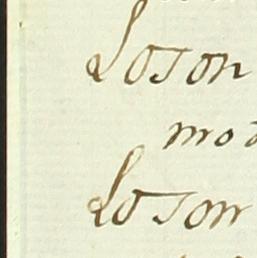 Loson
mo
Loson